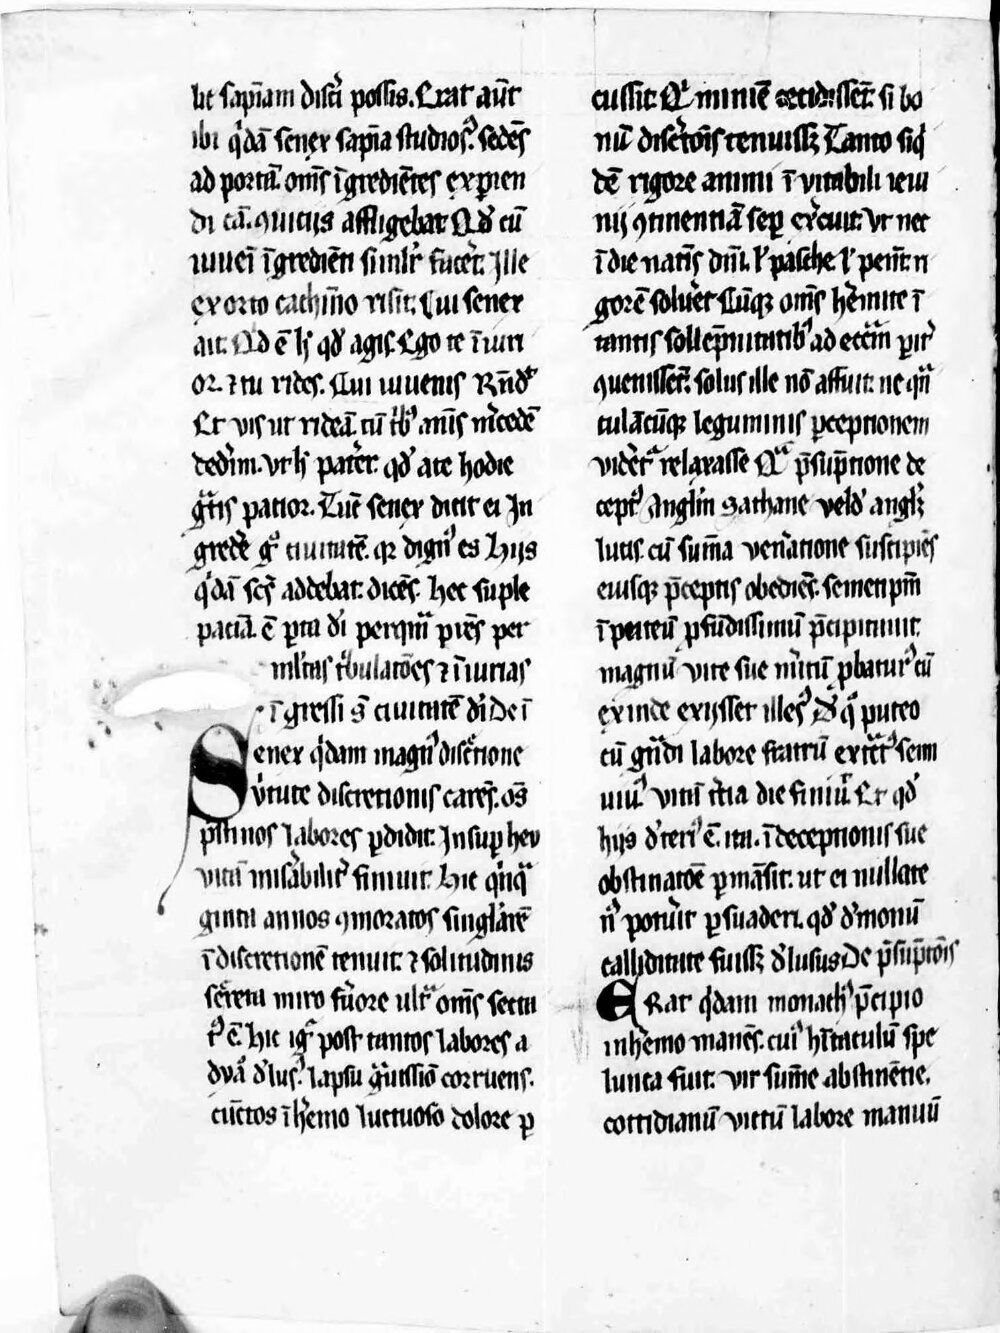 lit sapīam discī possis. Erat aūt
ibi q̇dā senex sapīa studios᷒. sedēs
ad portā. om̄s īgrediētes expien
di cā. ꝯuitijs affligebat Qd̄ cū
iuueī īgrediēti simlr̄ fuc̄et. Ille
exorto cachīno risit. Cui senex
ait. Qd ē h̄ qd̄ agis. Ego te īiuri
or. ⁊ tu rides. Cui iuuenis Rn̄dt
Et vis ut rideā. cū tb᷒ ānis m̄cedē
dedīm. vt h̄ pater̄. qd̄ a te hodie
gͣtis patior. Tūc senex dicit ei In
gred̄e gͦ ciuitatē. qꝛ dign᷒ es Hijs
q̇dā sc̄s addebat. dicēs. hec suple
patiā. ē pta d̄i per quā p̄ies per
ml̄tas tͥbulatōes ⁊ īiurias
īgressi s̄t ciuitatē d̄i De ī
Senex q̇dam magn᷒ disc̄tione
v̄tute discretionis cares̄. os̄
pstinos labores ꝑdidit. Insuꝑ heu
vitā misabilit̄ finiuit. Hic q̇nqͣ
ginta annos ꝯmoratos singlārē
ī discretionē tenuit. ⁊ solitudinis
sec̄reta miro f̄uore ultͣ om̄s secta
t᷒ ē. Hic igͬ post tantos labores a
dyā d̄lus᷒. lapsu gͣuissīo corruens.
cūctos ī h̄emo luctuoso dolore ꝑ
cussit. Qͥ minīe accidisset̄. si bo
nū disc̄tōis tenuissꝫ Tanto siq̇
dē rigore animi ī vitabili ieiu
nij ꝯtinentiā seꝑ exercuit. vt nec
ī die natīs dn̄i. ƚ pasche. ƚ pent̄. ri
gorē soluet̄ Cūqꝫ om̄s h̄emite ī
tantis sollēpnitatib᷒ ad eccͣm pit̄
ꝯuenissēt̄. solus ille nō affuit. ne qͣn
tulācūqꝫ leguminis ꝑceptionem
videt̄ᷣ relaxasse Qͣ p̄supt̄ione de
cept᷒ Anglm̄ Sathane velud̄ anglꝫ
lucis. cū sum̄a ven̄atione suscipiēs
eiusqꝫ p̄ceptis obediēs. semetipm̄
ī puteū ꝓfūdissimū p̄cipitauit.
magnū vite sue m̄itū ꝓbatur᷒ cū
exinde exijsset illes᷒ D̄ qͦ puteo
cū gͣndi labore fratrū extͣct᷒ semi
uiu᷒ vitā tͨia die finiuͥ. Et qd̄
hijs d̄teri᷒ ē. ita. ī deceptionis sue
obstinatōe ꝑmāsit. ut ei nullate
n᷒ potūit ꝑsuaderi. qd̄ d̄monū
calliditate fuissꝫ d̄lusus De p̄suptōis
ERat q̇dam monach᷒ p̄cipio
in h̄emo manēs. cui᷒ hītaculū spe
lunca fuit. vir sum̄e abstinētie.
cottidianū victū labore manuū